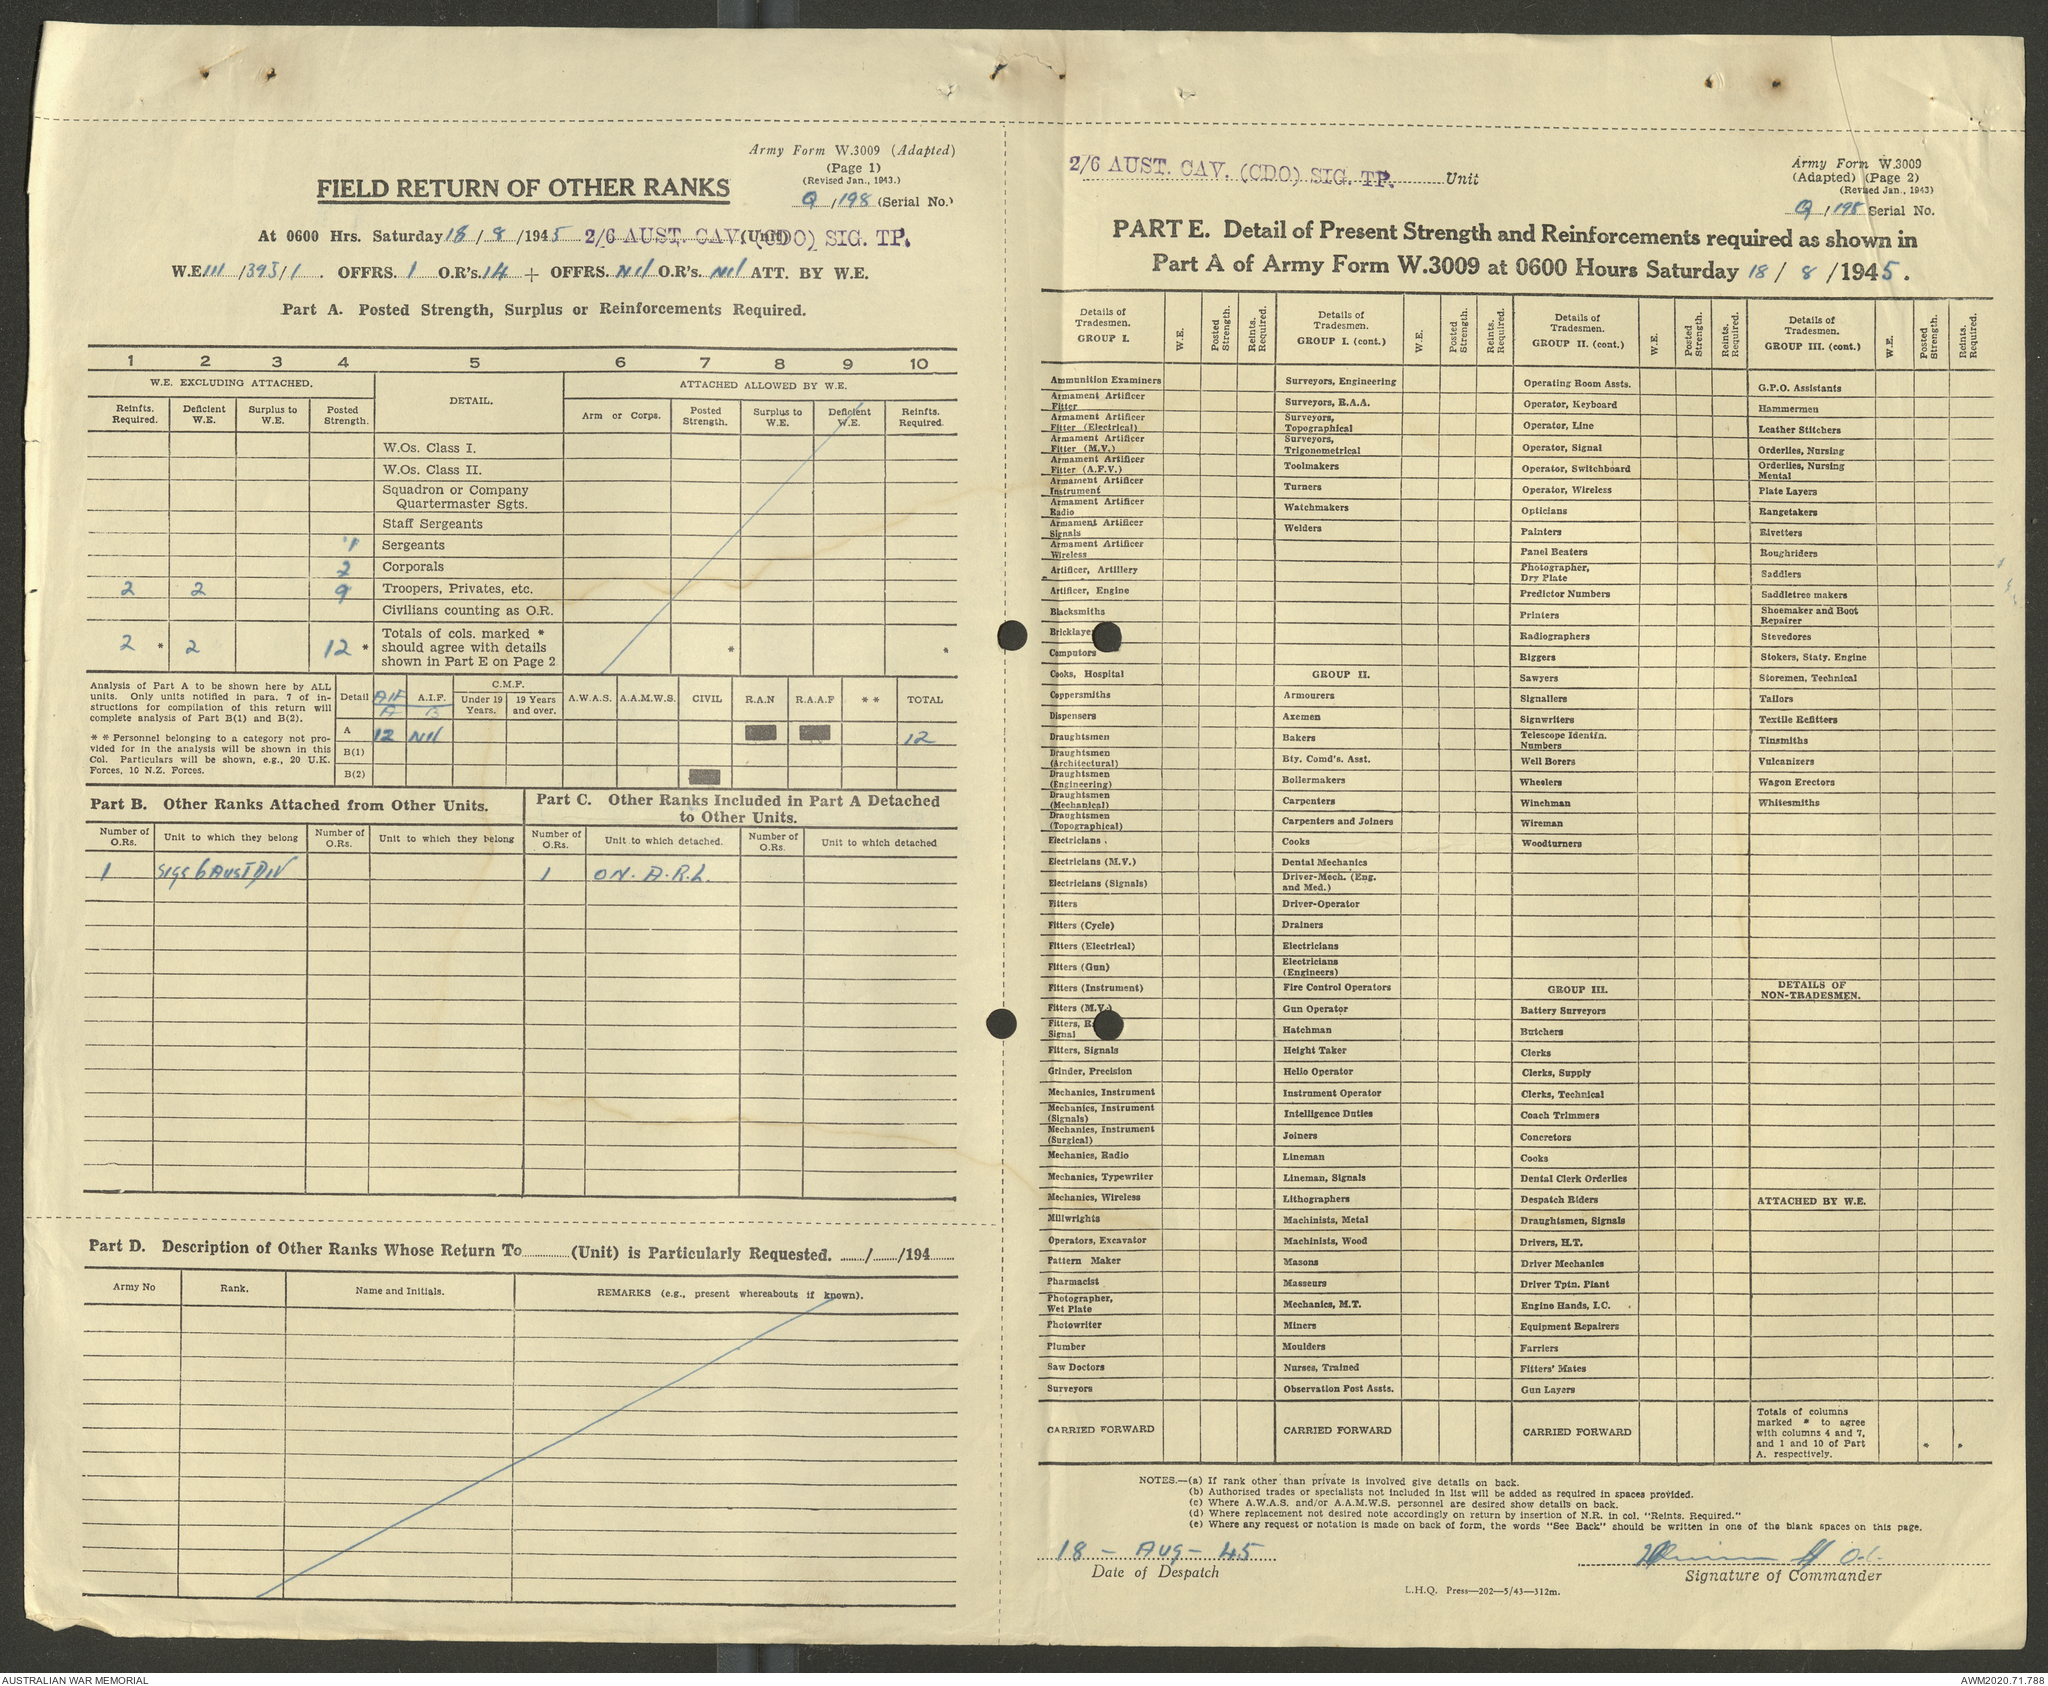 Army Form W.3009 (Adapted)
(Page 1)
(Revised Jan., 1943.)
FIELD RETURN OF OTHER RANKS
Q / 198 (Serial No.)
At 0600 Hrs. Saturday 18 / 8 /1945 2/6 AUST. CAV. (CDO) SIG. TP. (Unit)
W.E. 111 /393/1 . OFFRS. 1 O.R's. 14 + OFFRS. Nil O.R's. Nil ATT. BY W.E.
Part A. Posted Strength, Surplus or Reinforcements Required.
1 2 3 4 5 6 7 8 9 10
W.E. EXCLUDING ATTACHED. DETAIL. ATTACHED ALLOWED BY W.E.
Reinfts. Required. Deficient W.E. Surplus to W.E. Posted Strength. Arm or Corps. Posted Strength. Surplus to W.E. Deficient W.E. Reinfts. Required.
W.Os. Class I.
W.Os. Class II.
Squadron or Company
Quartermaster Sgts.
Staff Sergeants
1 Sergeants
2 Corporals
2 2 9 Troopers, Privates, etc.
Civilians counting as O.R.
2 * 2 12 * Totals of cols. marked *
should agree with details * *
shown in Part E on Page 2
Analysis of Part A to be shown here by ALL
units. Only units notified in para. 7 of in-
structions for compilation of this return will
complete analysis of Part B(1) and B(2).
* * Personnel belonging to a category not pro-
vided for in the analysis will be shown in this
Col. Particulars will be shown, e.g., 20 U.K.
Forces, 10 N.Z. Forces.
Detail AIF A A.I.F. B C.M.F. Under 19 Years. 19 Years and over. A.W.A.S. A.A.M.W.S. CIVIL R.A.N R.A.A.F * * TOTAL
A 12 Nil 12
B(1)
B(2)
Part B. Other Ranks Attached from Other Units.
Part C. Other Ranks Included in Part A Detached
to Other Units.
Number of O.Rs. Unit to which they belong Number of O.Rs. Unit to which they belong Number of O.Rs. Unit to which detached. Number of O.Rs. Unit to which detached
1 SIGS 6 AUST DIV 1 ON. A.R.L.
Part D. Description of Other Ranks Whose Return To (Unit) is Particularly Requested. / /194
Army No Rank. Name and Initials. REMARKS (e.g., present whereabouts if known).
2/6 AUST. CAV. (CDO) SIG. TP. Unit
Army Form W.3009
(Adapted) (Page 2)
(Revised Jan., 1943)
Q / 198 Serial No.
PART E. Detail of Present Strength and Reinforcements required as shown in
Part A of Army Form W.3009 at 0600 Hours Saturday 18 / 8 /1945.
Details of Tradesmen. GROUP I. W.E. Posted Strength. Reints. Required.
Ammunition Examiners
Armament Artificer
Fitter
Armament Artificer
Fitter (Electrical)
Armament Artificer
Fitter (M.V.)
Armament Artificer
Fitter (A.F.V.)
Armament Artificer
Instrument
Armament Artificer
Radio
Armament Artificer
Signals
Armament Artificer
Wireless
Artificer, Artillery
Artificer, Engine
Blacksmiths
Bricklaye
Computors
Cooks, Hospital
Coppersmiths
Dispensers
Draughtsmen
Draughtsmen
(Architectural)
Draughtsmen
(Engineering)
Draughtsmen
(Mechanical)
Draughtsmen
(Topographical)
Electricians .
Electricians (M.V.)
Electricians (Signals)
Fitters
Fitters (Cycle)
Fitters (Electrical)
Fitters (Gun)
Fitters (Instrument)
Fitters (M.V.)
Fitters, R
Signal
Fitters, Signals
Grinder, Precision
Mechanics, Instrument
Mechanics, Instrument
(Signals)
Mechanics, Instrument
(Surgical)
Mechanics, Radio
Mechanics, Typewriter
Mechanics, Wireless
Millwrights
Operators, Excavator
Pattern Maker
Pharmacist
Photographer,
Wet Plate
Photowriter
Plumber
Saw Doctors
Surveyors
CARRIED FORWARD
Details of Tradesmen. GROUP I. (cont.) W.E. Posted Strength. Reints. Required.
Surveyors, Engineering
Surveyors, R.A.A.
Surveyors,
Topographical
Surveyors,
Trigonometrical
Toolmakers
Turners
Watchmakers
Welders
GROUP II.
Armourers
Axemen
Bakers
Bty. Comd's. Asst.
Boilermakers
Carpenters
Carpenters and Joiners
Cooks
Dental Mechanics
Driver-Mech. (Eng.
and Med.)
Driver-Operator
Drainers
Electricians
Electricians
(Engineers)
Fire Control Operators
Gun Operator
Hatchman
Height Taker
Helio Operator
Instrument Operator
Intelligence Duties
Joiners
Lineman
Lineman, Signals
Lithographers
Machinists, Metal
Machinists, Wood
Masons
Masseurs
Mechanics, M.T.
Miners
Moulders
Nurses, Trained
Observation Post Assts.
CARRIED FORWARD
Details of Tradesmen. GROUP II. (cont.) W.E. Posted Strength. Reints. Required.
Operating Room Assts.
Operator, Keyboard
Operator, Line
Operator, Signal
Operator, Switchboard
Operator, Wireless
Opticians
Painters
Panel Beaters
Photographer,
Dry Plate
Predictor Numbers
Printers
Radiographers
Riggers
Sawyers
Signallers
Signwriters
Telescope Identfn.
Numbers
Well Borers
Wheelers
Winchman
Wireman
Woodturners
GROUP III.
Battery Surveyors
Butchers
Clerks
Clerks, Supply
Clerks, Technical
Coach Trimmers
Concretors
Cooks
Dental Clerk Orderlies
Despatch Riders
Draughtsmen, Signals
Drivers, H.T.
Driver Mechanics
Driver Tptn. Plant
Engine Hands, I.C.
Equipment Repairers
Farriers
Fitters' Mates
Gun Layers
CARRIED FORWARD
Details of Tradesmen. GROUP III. (cont.) W.E. Posted Strength. Reints. Required.
G.P.O. Assistants
Hammermen
Leather Stitchers
Orderlies, Nursing
Orderlies, Nursing
Mental
Plate Layers
Rangetakers
Rivetters
Roughriders
Saddlers
Saddletree makers
Shoemaker and Boot
Repairer
Stevedores
Stokers, Staty. Engine
Storemen, Technical
Tailors
Textile Refitters
Tinsmiths
Vulcanizers
Wagon Erectors
Whitesmiths
DETAILS OF
NON-TRADESMEN.
ATTACHED BY W.E.
Totals of columns
marked * to agree
with columns 4 and 7,
and 1 and 10 of Part * *
A. respectively.
NOTES.—(a) If rank other than private is involved give details on back.
(b) Authorised trades or specialists not included in list will be added as required in spaces provided.
(c) Where A.W.A.S. and/or A.A.M.W.S. personnel are desired show details on back.
(d) Where replacement not desired note accordingly on return by insertion of N.R. in col. "Reints. Required."
(e) Where any request or notation is made on back of form, the words "See Back" should be written in one of the blank spaces on this page.
18 - AUG - 45
Date of Despatch
Signature of Commander
L.H.Q. Press—202—5/43—312m.
AUSTRALIAN WAR MEMORIAL
AWM2020.71.788